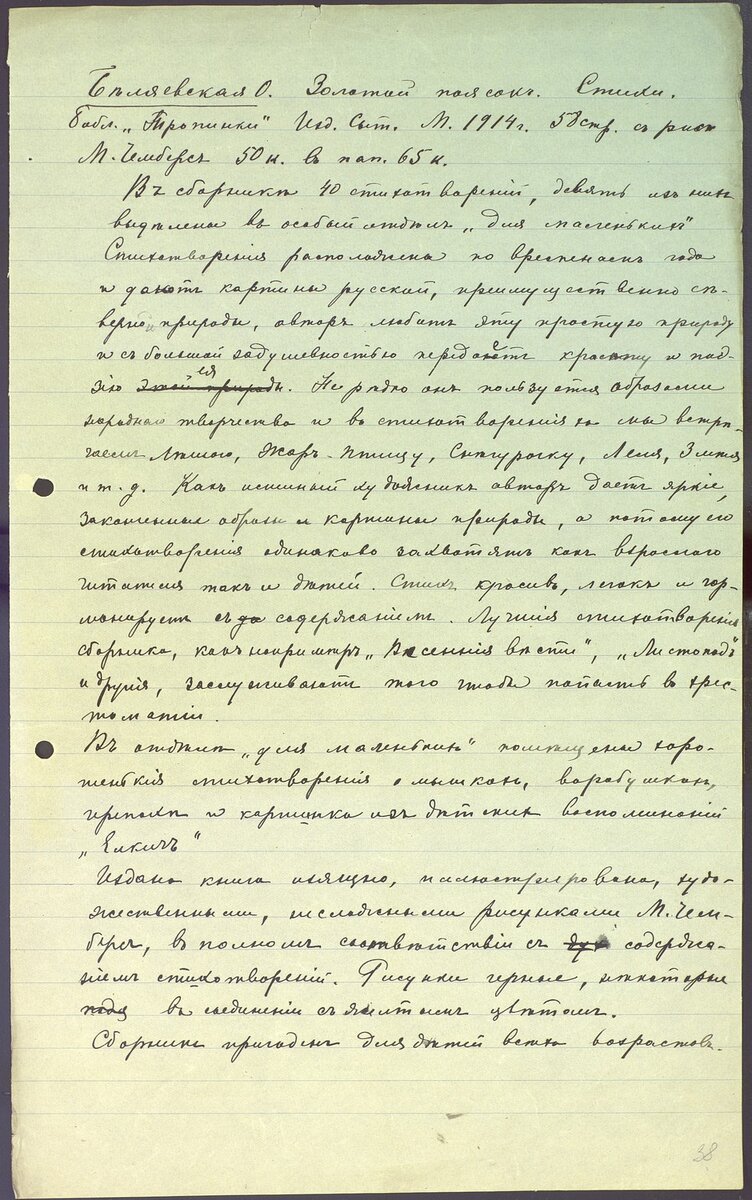 Бѣляевская О. Золотой поясокъ. Стихи.
Библ. „Тропинки" Изд. Сыт. М. 1914 г. 58 стр. съ рис.
М. Чемберсъ 50 к. въ пап. 65 к.
Въ сборникѣ 40 стихотворенiй, девять изъ нихъ
выдѣлены въ особый отдѣлъ „для маленькихъ"
Стихотворенiя расположены по временамъ года
и даютъ картины русской, преимущественно сѣ-
верной природы, авторъ любитъ эту простую природу
и съ большой задушевностью передаетъ красоту и поэ-
зiю ея. Нерѣдко онъ пользуется образами
народнаго творчества и въ стихотворенiяхъ мы встрѣ-
чаемъ Лѣшаго, Жаръ-птицу, Снѣгурочку, Леля, Змѣя
и т. д. Какъ истинный художникъ авторъ даетъ яркiе,
законченные образы и картины природы, а потому его
стихотворенiя одинаково захватятъ какъ взрослаго
читателя такъ и дѣтей. Стихъ красивъ, легокъ и гар-
монируетъ съ содержанiемъ. Лучшiя стихотворенiя
сборника, какъ напримѣръ „Весеннiя вѣсти", „Листопадъ"
и другiя, заслуживаютъ того чтобы попасть въ хрес-
томатiи.
Въ отдѣлѣ „для маленькихъ" помѣщены хоро-
шенькiя стихотворенiя о мышкахъ, воробушкахъ,
черепахѣ и картинка изъ дѣтскихъ воспоминанiй
„Елкичъ"
Издана книга изящно, иллюстрирована, худо-
жественными, несложными рисунками М. Чем-
берсъ, въ полномъ соотвѣтствiи съ содержа-
нiемъ стихотворенiй. Рисунки черные, нѣкоторые
въ соединенiи съ желтымъ цвѣтомъ.
Сборникъ пригоденъ для дѣтей всѣхъ возрастовъ.
38